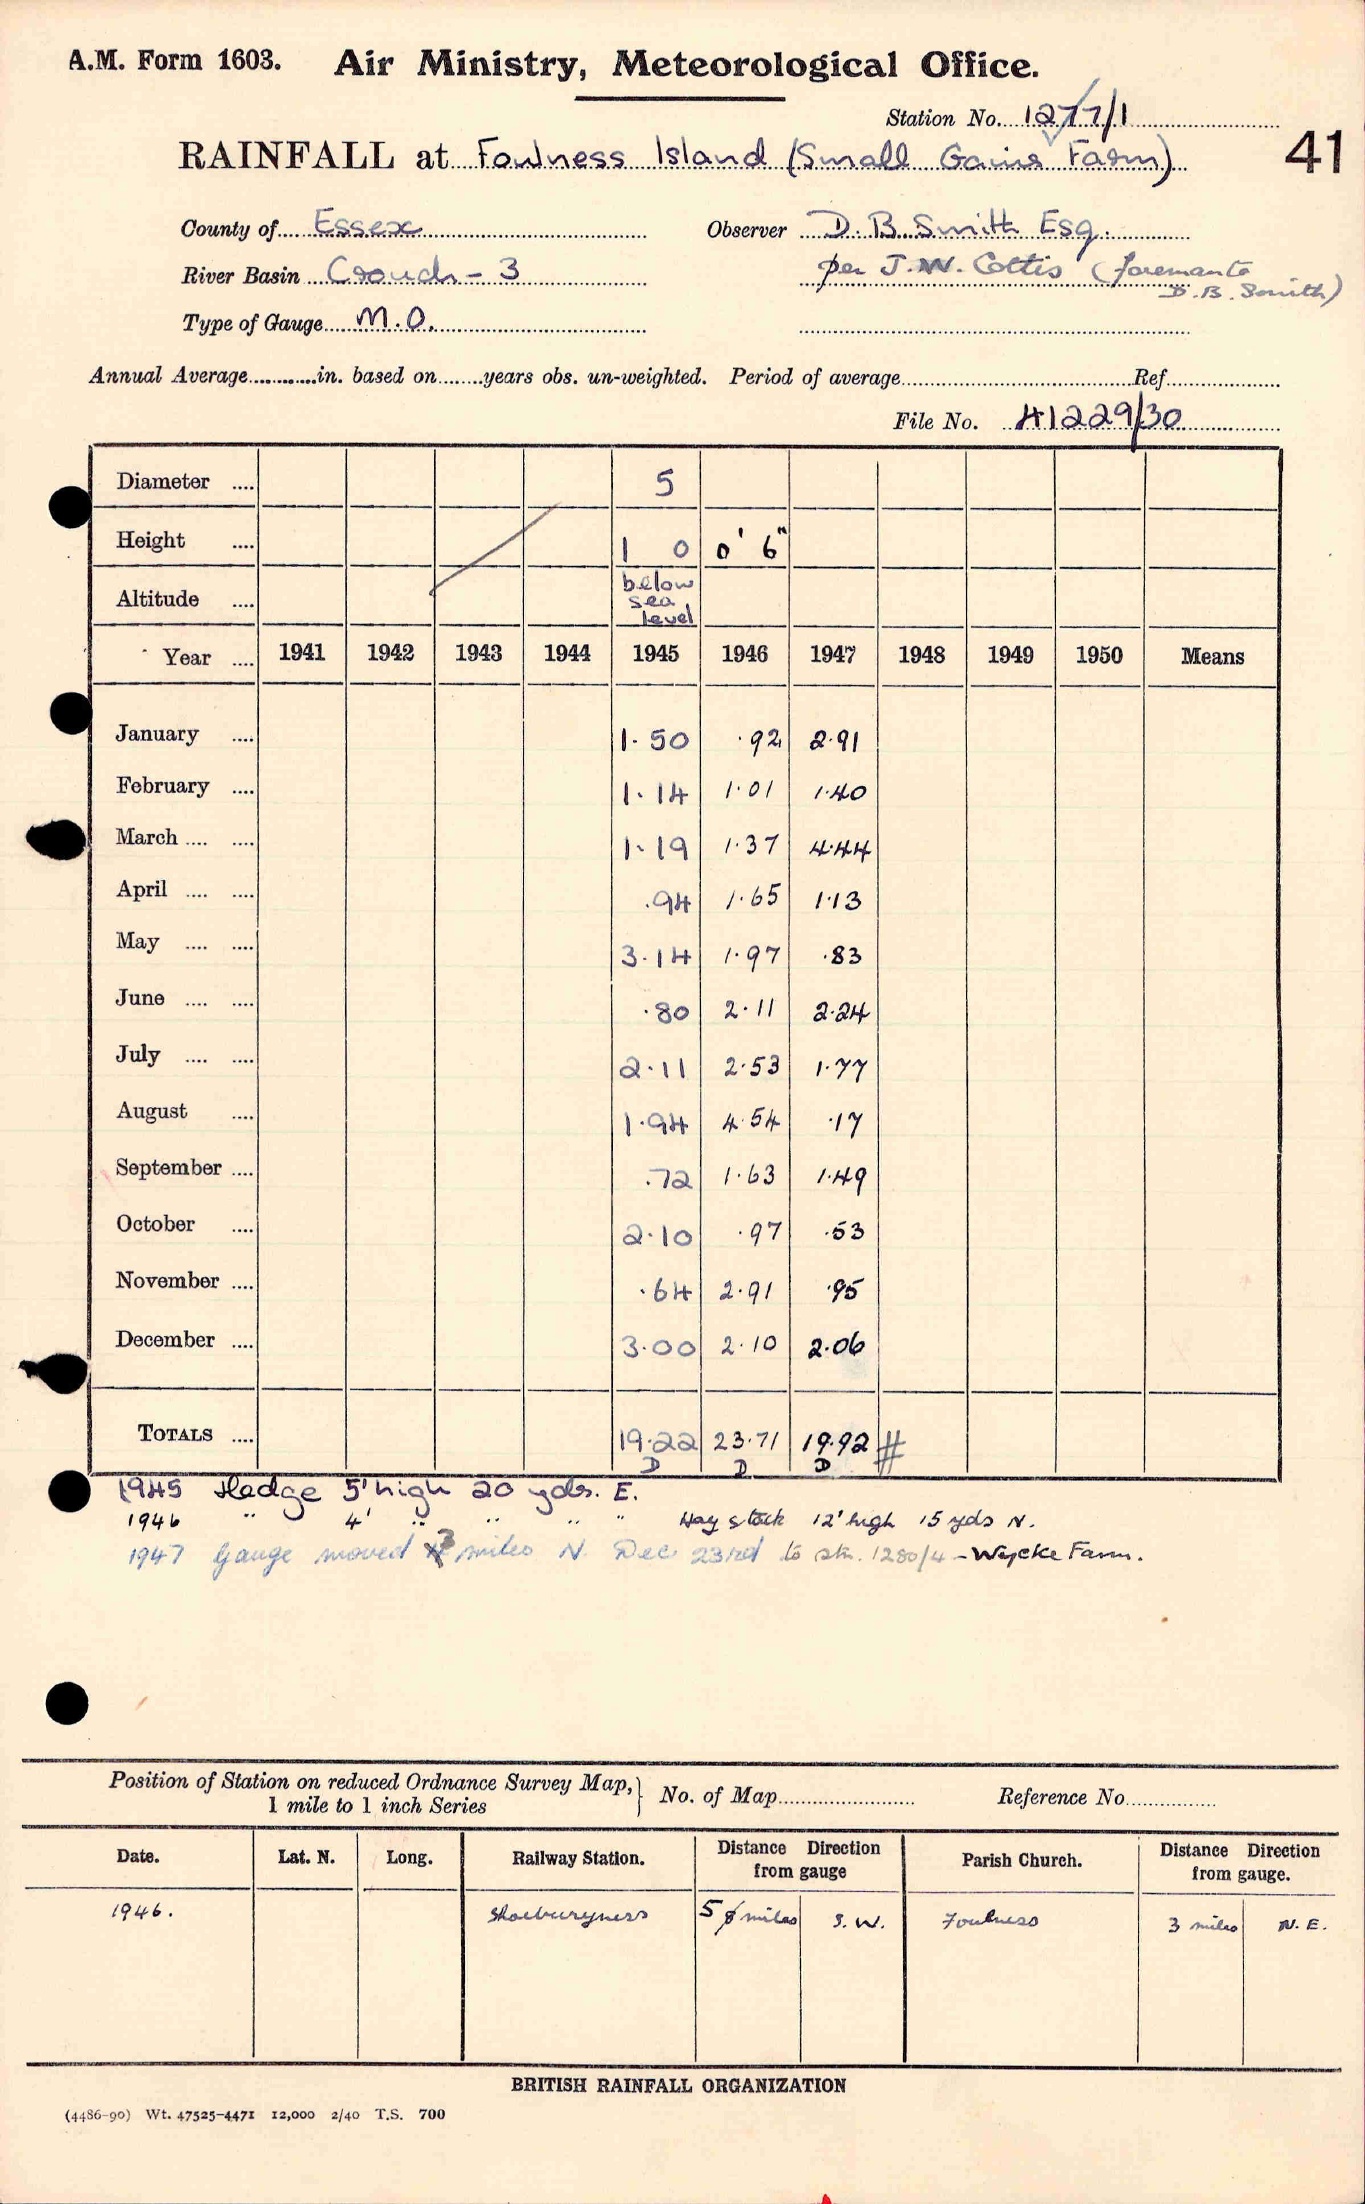 A.M. Form 1603. Air Ministry, Meteorological Office.
Station No. 1277/1
RAINFALL at Foulness Island (Small Gains Farm)
41
County of Essex Observer D. B. Smith Esq.
River Basin Crouch - 3 per J. W. Cottis (foreman to
D. B. Smith)
Type of Gauge M.O.
Annual Average in. based on years obs. un-weighted. Period of average Ref
File No. 41229/30
Diameter .... 5
Height .... 1 0 0' 6"
Altitude .... below sea level
Year .... 1941 1942 1943 1944 1945 1946 1947 1948 1949 1950 Means
January .... 1.50 .92 2.91
February .... 1.14 1.01 1.40
March .... .... 1.19 1.37 4.44
April .... .... .94 1.65 1.13
May .... .... 3.14 1.97 .83
June .... .... .80 2.11 2.24
July .... .... 2.11 2.53 1.77
August .... 1.94 4.54 .17
September .... .72 1.63 1.49
October .... 2.10 .97 .53
November .... .64 2.91 .95
December .... 3.00 2.10 2.06
TOTALS .... 19.22 23.71 19.92 #
D D D
1945 Hedge 5' high 20 yds. E.
1946 " 4' " " " " Hay stack 12' high 15 yds N.
1947 Gauge moved 3 miles N. Dec 23rd to stn. 1280/4 - Wycke Farm.
Position of Station on reduced Ordnance Survey Map,
1 mile to 1 inch Series } No. of Map Reference No
Date. Lat. N. Long. Railway Station. Distance Direction from gauge Parish Church. Distance Direction from gauge.
1946. Shoeburyness 5 miles S.W. Foulness 3 miles N.E.
BRITISH RAINFALL ORGANIZATION
(4486-90) Wt. 47525-4471 12,000 2/40 T.S. 700